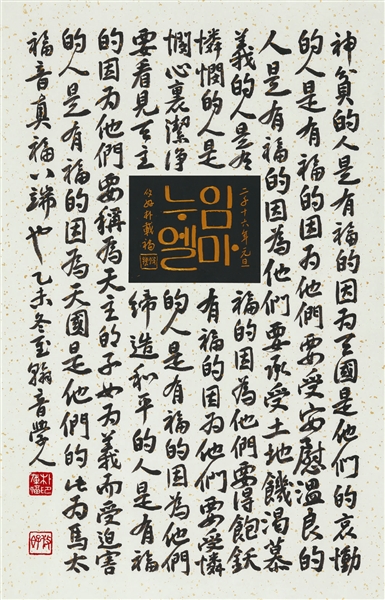 神貧的人是有福的因为天國是他們的哀慟
的人是有福的因为他們要受安慰溫良的
人是有福的因為他們要承受土地饑渴慕
義的人是有福的因為他們要得飽飫
憐憫的人是有福的因为他們要受憐
憫心裏潔淨的人是有福的因為他們
要看見天主締造和平的人是有福
的因为他們要稱為天主的子女为義而受迫害
的人是有福的因為天國是他們的此为馬太
福音真福八端也 乙未冬至翰音學人
二千十六年元旦
임마
누엘